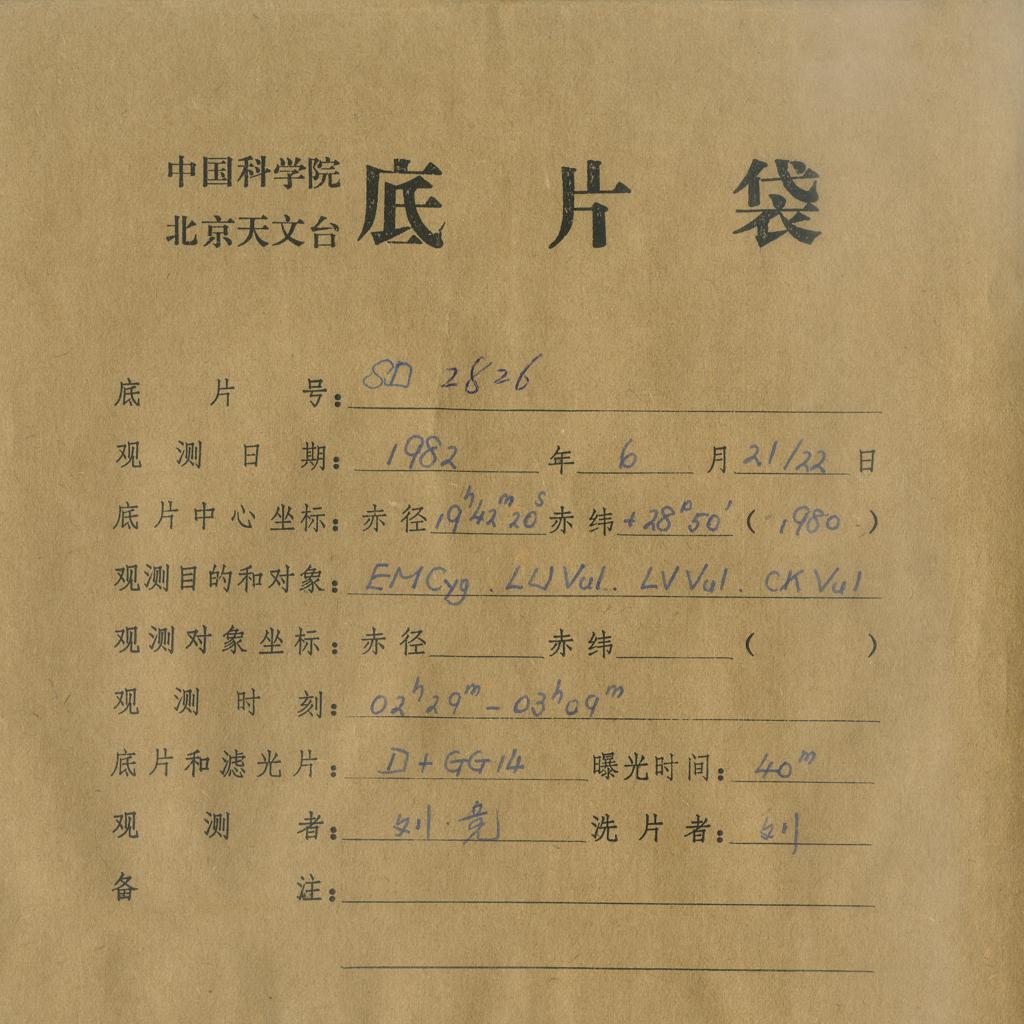 中国科学院
北京天文台
底片袋
底片号：SD 2826
观测日期：1982年6月21/22日
底片中心坐标：赤径19ʰ42ᵐ20ˢ赤纬+28°50′（1980）
观测目的和对象：EM Cyg . LU Vul . LV Vul . CK Vul
观测对象坐标：赤径 赤纬 （ ）
观测时刻：02ʰ29ᵐ－03ʰ09ᵐ
底片和滤光片：D+GG14 曝光时间：40ᵐ
观测者：刘·竞 洗片者：刘
备注：